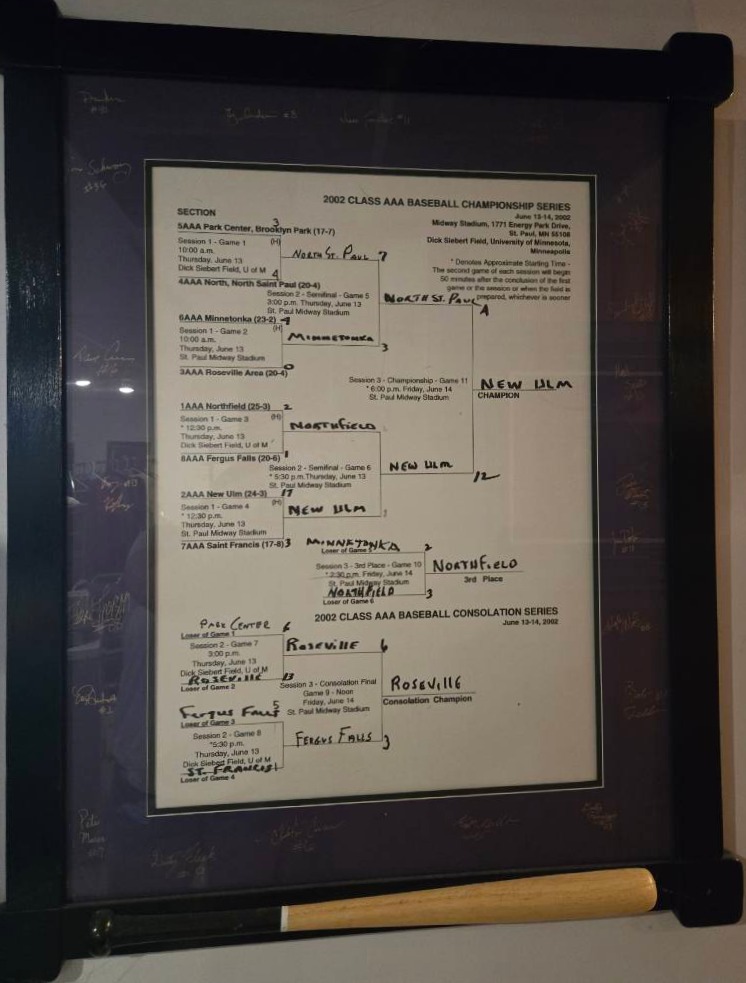 2002 CLASS AAA BASEBALL CHAMPIONSHIP SERIES
June 13-14, 2002
Midway Stadium, 1771 Energy Park Drive,
St. Paul, MN 55108
Dick Siebert Field, University of Minnesota,
Minneapolis
* Denotes Approximate Starting Time -
The second game of each session will begin
50 minutes after the conclusion of the first
game or the session or when the field is
prepared, whichever is sooner
SECTION
3
5AAA Park Center, Brooklyn Park (17-7)
Session 1 - Game 1 (H)
10:00 a.m.
Thursday, June 13
Dick Siebert Field, U of M
4
NORTH ST. PAUL 7
4AAA North, North Saint Paul (20-4)
Session 2 - Semifinal - Game 5
3:00 p.m. Thursday, June 13
St. Paul Midway Stadium
NORTH ST. PAUL
6AAA Minnetonka (23-2)
Session 1 - Game 2 (H)
10:00 a.m.
Thursday, June 13
St. Paul Midway Stadium
MINNETONKA
3
0
3AAA Roseville Area (20-4)
Session 3 - Championship - Game 11
* 6:00 p.m. Friday, June 14
St. Paul Midway Stadium
NEW ULM
CHAMPION
1AAA Northfield (25-3) 2
Session 1 - Game 3 (H)
* 12:30 p.m.
Thursday, June 13
Dick Siebert Field, U of M
NORTHFIELD
1
8AAA Fergus Falls (20-6)
Session 2 - Semifinal - Game 6
* 5:30 p.m. Thursday, June 13
St. Paul Midway Stadium
NEW ULM
12
2AAA New Ulm (24-3) 17
Session 1 - Game 4 (H)
* 12:30 p.m.
Thursday, June 13
St. Paul Midway Stadium
NEW ULM
7AAA Saint Francis (17-8) 3
MINNETONKA 2
Loser of Game 5
Session 3 - 3rd Place - Game 10
* 2:30 p.m. Friday, June 14
St. Paul Midway Stadium
NORTHFIELD 3
Loser of Game 6
NORTHFIELD
3rd Place
2002 CLASS AAA BASEBALL CONSOLATION SERIES
June 13-14, 2002
PARK CENTER 6
Loser of Game 1
Session 2 - Game 7
3:00 p.m.
Thursday, June 13
Dick Siebert Field, U of M
ROSEVILLE 13
Loser of Game 2
ROSEVILLE 6
Session 3 - Consolation Final
Game 9 - Noon
Friday, June 14
St. Paul Midway Stadium
ROSEVILLE
Consolation Champion
FERGUS FALLS 5
Loser of Game 3
Session 2 - Game 8
*5:30 p.m.
Thursday, June 13
Dick Siebert Field, U of M
ST. FRANCIS 1
Loser of Game 4
FERGUS FALLS 3